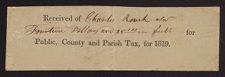 Received of Charles Roach
Fourteen Dollars and in full for
Public, County and Parish Tax, for 1819.